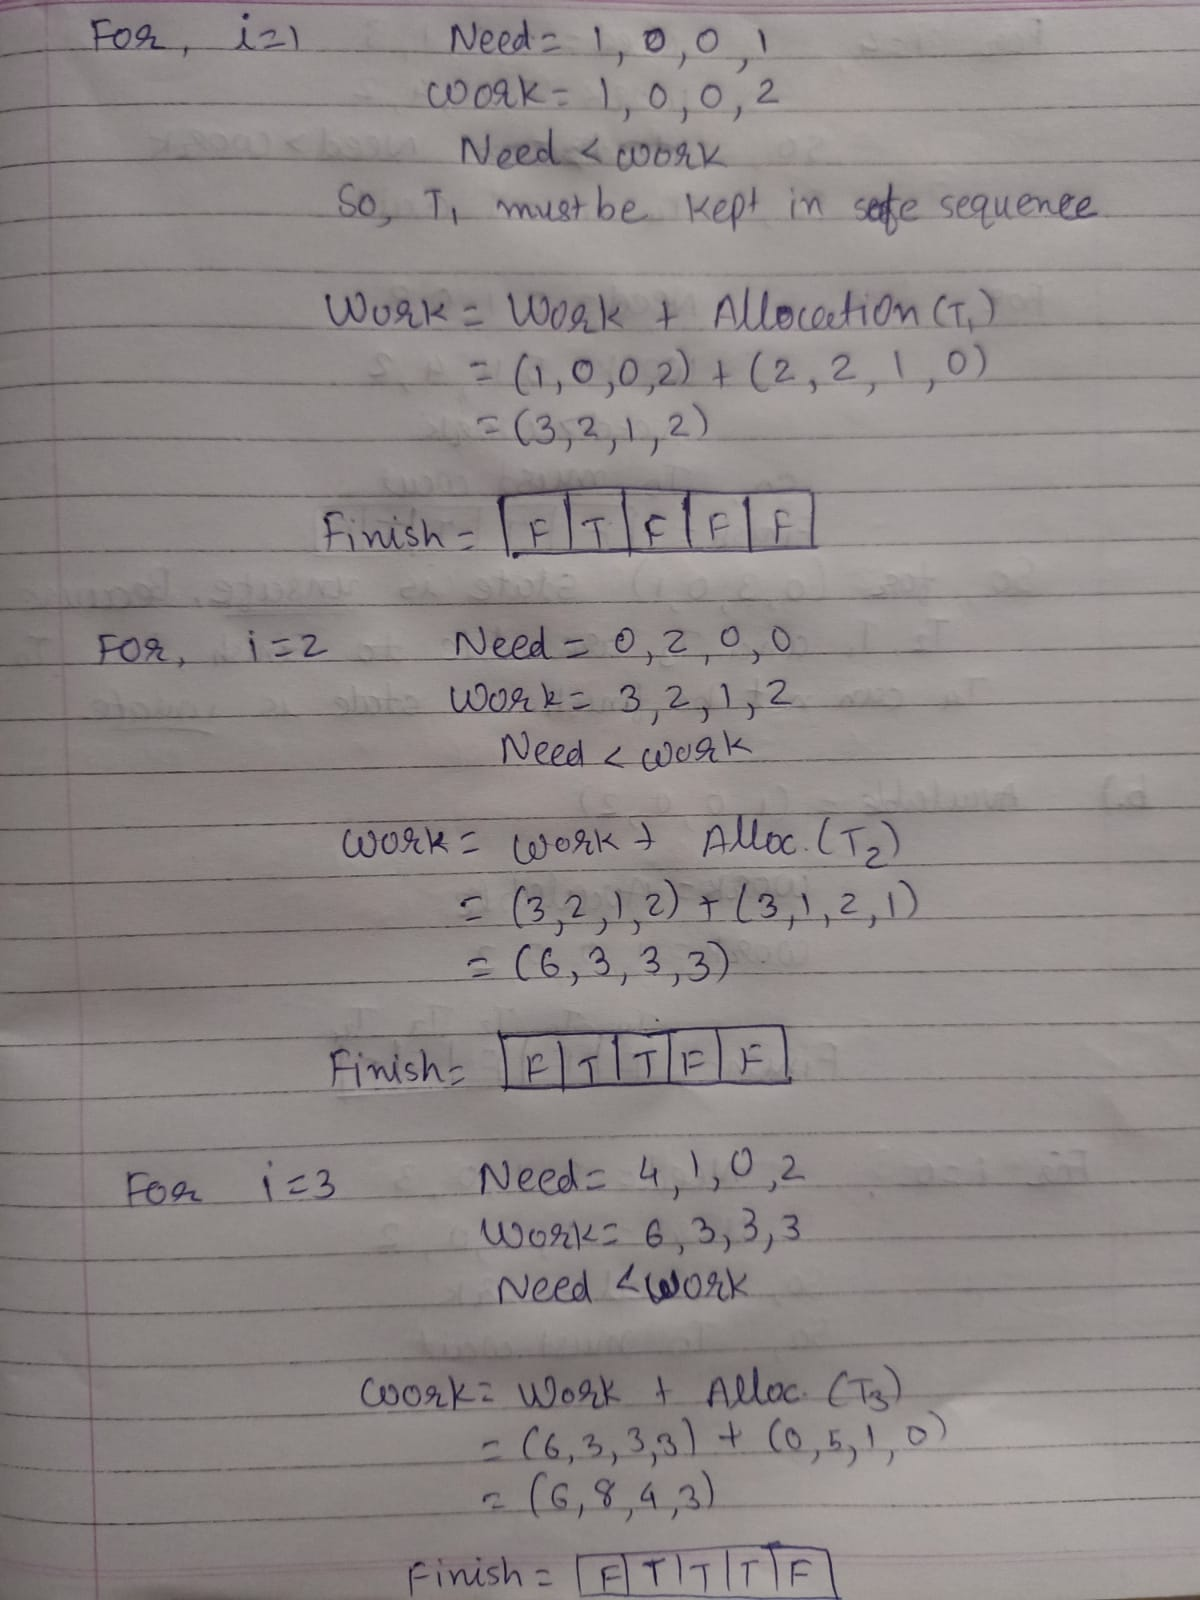 For, i=1 Need = 1, 0, 0, 1
Work = 1, 0, 0, 2
Need < work
So, T1 must be kept in safe sequence
Work = Work + Allocation (T1)
= (1,0,0,2) + (2,2,1,0)
= (3,2,1,2)
Finish = F T F F F
For, i=2 Need = 0, 2, 0, 0
Work = 3, 2, 1, 2
Need < work
Work = Work + Alloc. (T2)
= (3,2,1,2) + (3,1,2,1)
= (6,3,3,3)
Finish = F T T F F
For i=3 Need = 4, 1, 0, 2
Work = 6, 3, 3, 3
Need < work
Work = Work + Alloc. (T3)
= (6,3,3,3) + (0,5,1,0)
= (6,8,4,3)
Finish = F T T T F